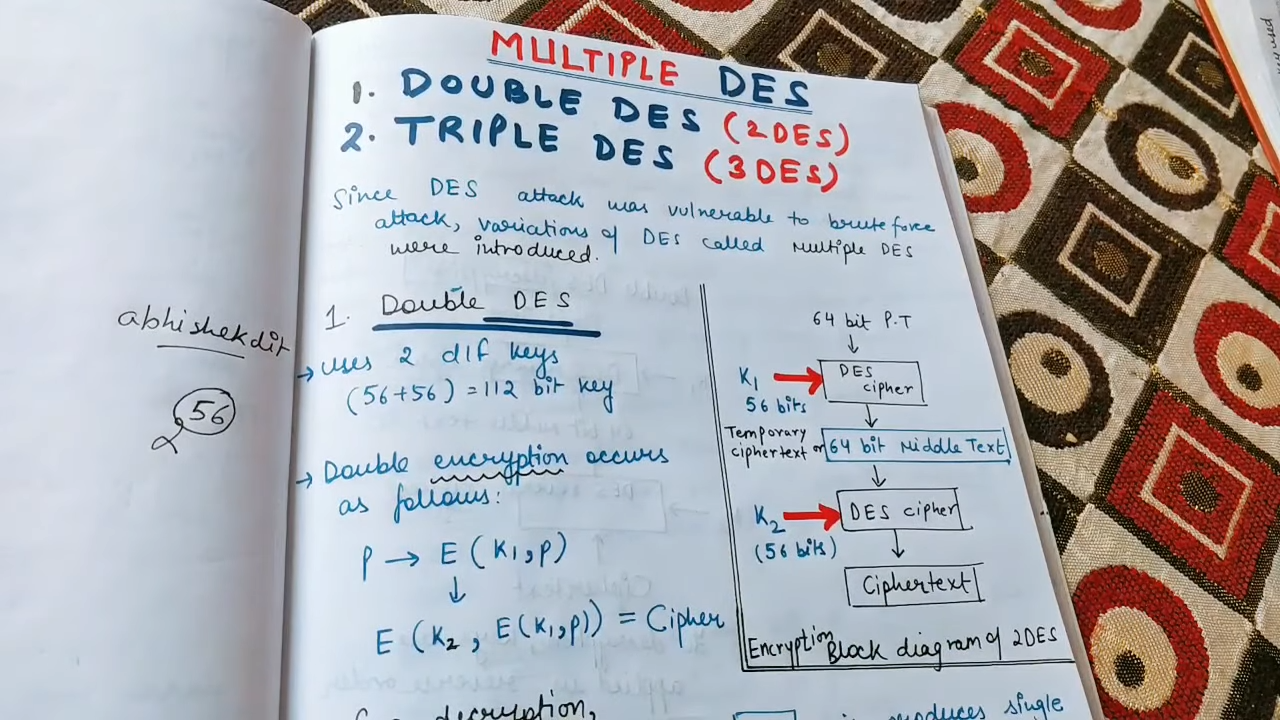 MULTIPLE DES
1. DOUBLE DES (2DES)
2. TRIPLE DES (3DES)
Since DES attack was vulnerable to brute force
attack, variations of DES called Multiple DES
were introduced.
1. Double DES
→ uses 2 dif keys
(56+56) = 112 bit key
→ Double encryption occurs
as follows:
P → E (K1, P)
↓
E (K2, E(K1,P)) = Cipher
for decryption,
64 bit P.T
↓
K1 → DES cipher
56 bits
↓
Temporary ciphertext or 64 bit Middle Text
↓
K2 → DES cipher
(56 bits)
↓
Ciphertext
Encryption Block diagram of 2DES
produces single
abhishekdit
56
used